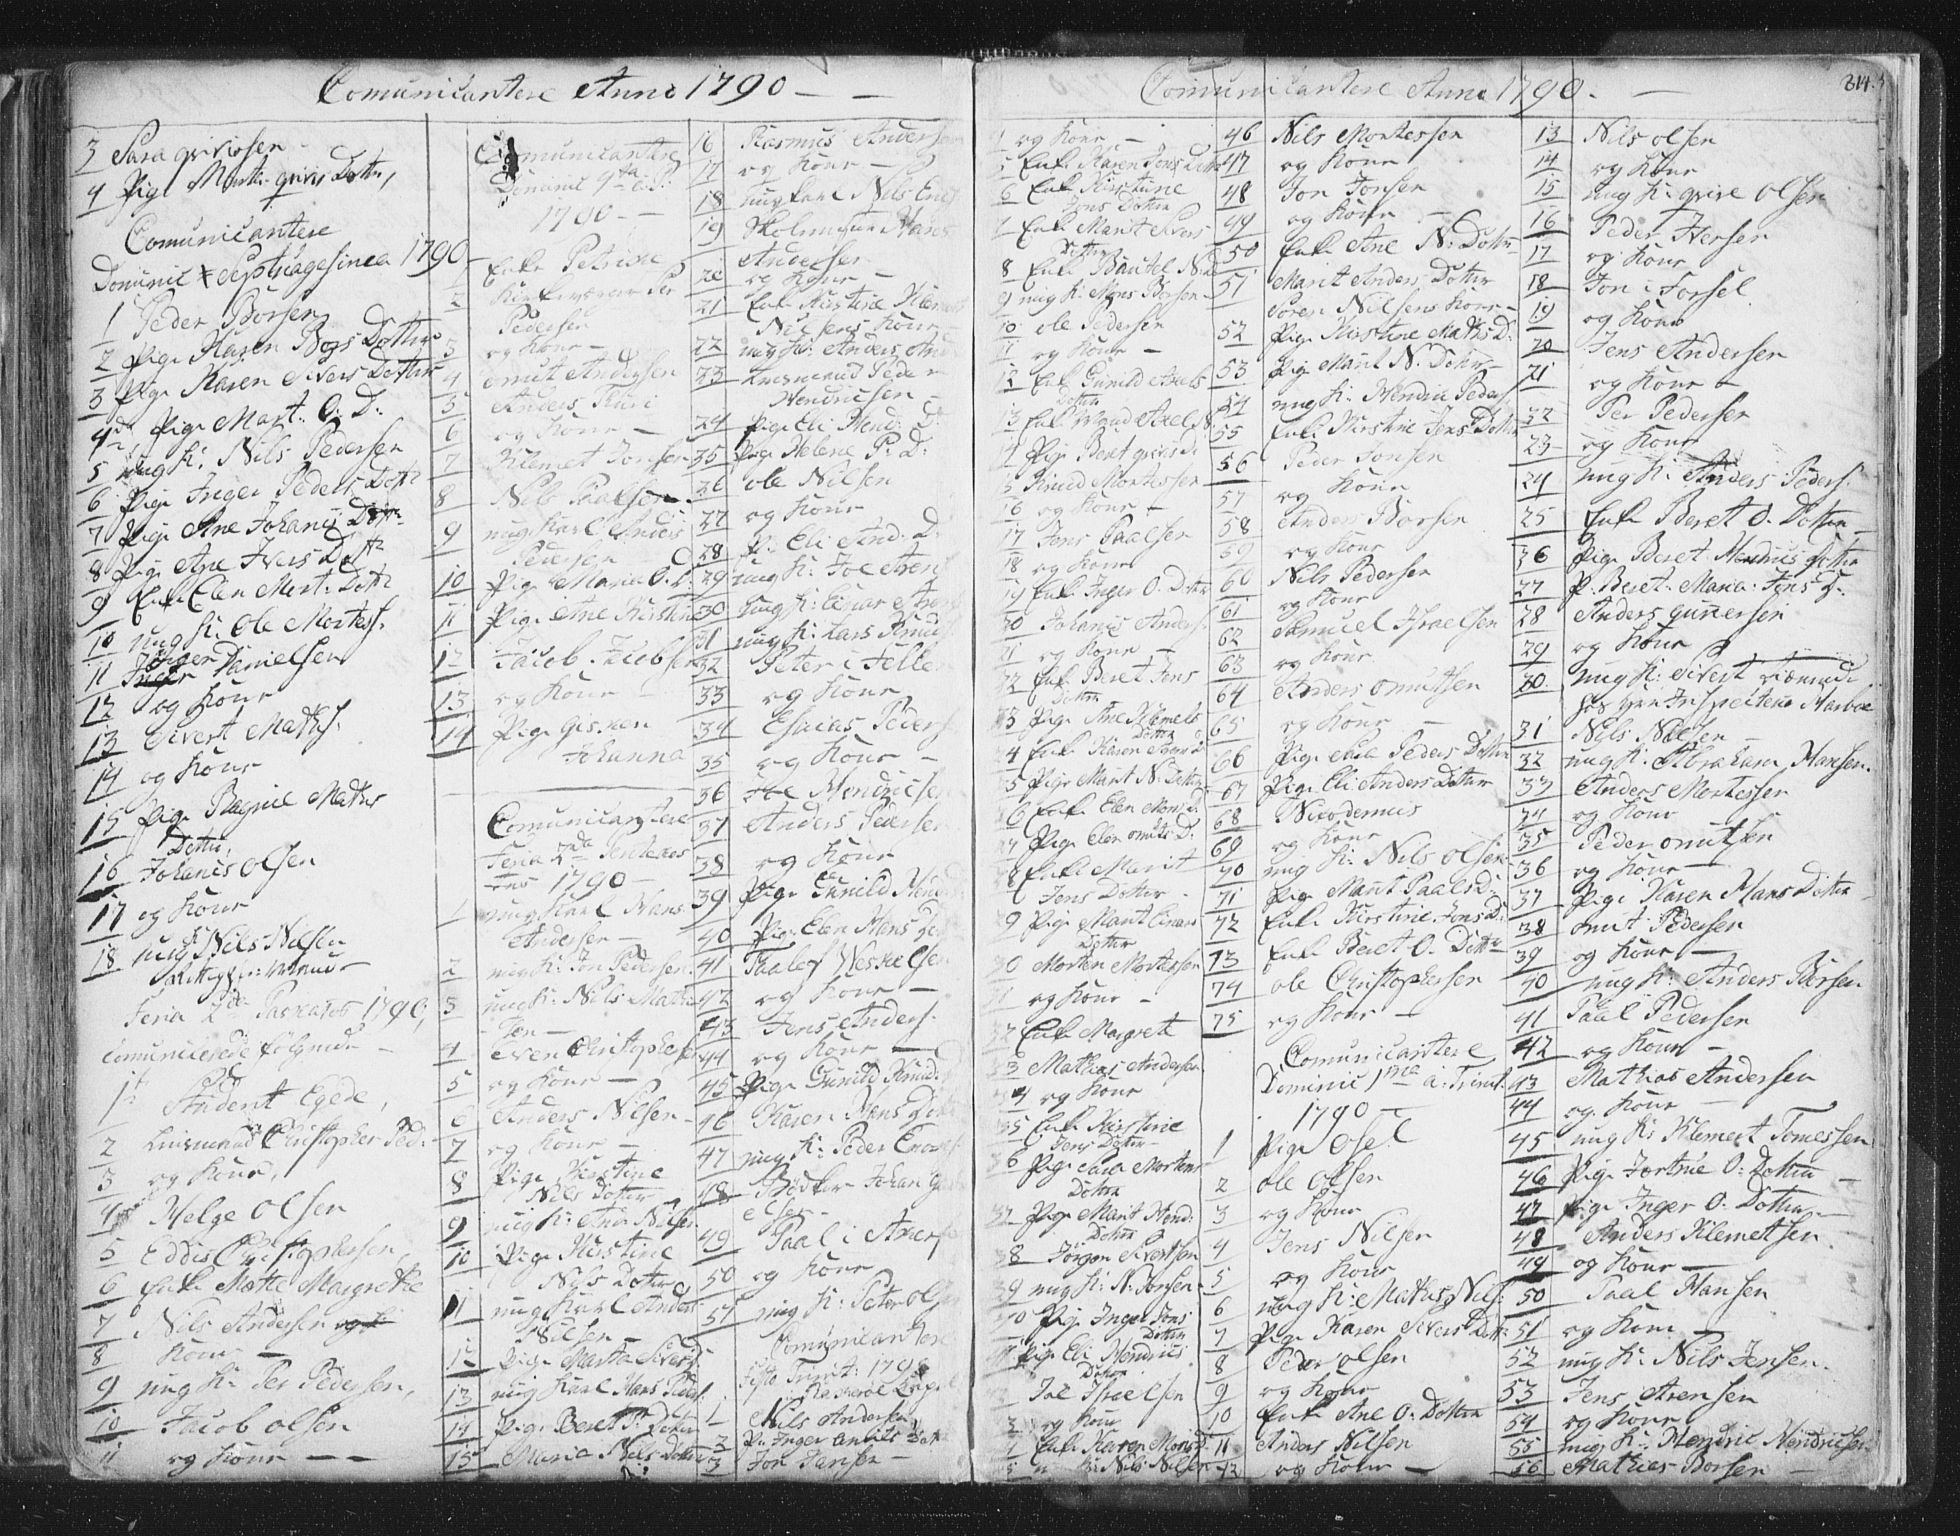 Comunicantere Anno 1790
3 Sara
4 Pige Dotter,
Comunicantere
Dominic Septuagesimea 1790
1 Peder Borsen
2 Pige Karen Dotter
3 Pige Karen Sivers Dotter
4 Pige Mart: O: D:
5 ung K: Nils Pedersen
6 Pige Inger Peders Dott
7 Pige Ane Johanis
8 Pige Ane Ivers Dott
9 Enke Elen Mort: Dott
10 ung K: Ole Mortess:
11 Danielsen
12 og Kone
13 Sivert Maths:
14 og Kone
15 Pige Ragnil Mathis
Dotter,
16 Johanis Olsen
17 og Kone
18 ung K Nils Nilsen
Feria 2da Paskatos 1790,
Comunicerede følgende
1 Student Egede,
2 Christopher Ped:
3 og Kone,
4 Helge Olsen
5 Eddis Christophersen
6 Enke Mette Margrethe
7 Nils Andersen
8 Kone
9 ung K: Per Pedersen,
10 Jacob Olsen
11 og Kone
Comunicantere
Dominic
1790
1 Enke Petrine
2
Pedersen
3 og Kone
4 Omut Andersen
5 Anders
6 og Kone
7 Klemet Jonsen
8 Nils Paalsen
9 ung Karl Anders
Pedersen
10 Pige Marie O. D:
11 Pige Ane Kirstine
12 Jacob Jacobsen
13 og Kone
14 Pige Gisken
Johanna
Comunicantere
Feria 2da Pentecos
1790
1 ung Karl Hans
Andersen
2 ung K: Jon Pedersen
3 ung K: Nils Mathi
4 Even Christophersen
5 og Kone
6 Anders Nilsen
7 og Kone
8 Pige Kirstine
Nils Dotter
9 ung K: Ane Nilsen
10 Pige Kirstine
Nils Dotter
11 ung Karl Anders
Nilsen
12 Pige Marta Sivers
13 ung Karl Hans Peder
14 Pige Beret P: Dotter
15 Maria Nils Dotter
16 Rasmus Andersen
17 og Kone
18 ung Karl Nils
19 Skolemester Hans
Andersen
20 og Kone
21 Enke Kirstine
Nilsens Kone
22 ung K: Anders
23 Peder
Hendricsen
24 Pige Eli Hend: D:
25 Pige Helene P: D:
26 Ole Nilsen
27 og Kone
28 P: Eli And: D:
29 ung K: Joe
30 ung K: Einar
31 ung K: Lars Knud
32 Peter i
33 og Kone
34 Esaias Peders
35 og Kone
36 Joe Hendricsen
37 Anders Pedersen
38 og Kone
39 Pige Gunild
40 Pige Elen Mons
41 Paalof Weskelsen
42 og Kone
43 Jens Anders:
44 og Kone
45 Pige Gunild Knud:
46 Karen Hans
47 ung K: Peder
48 Bødker Johan
49 Paal i
50 og Kone
51 ung K: Peter Olsen
Comunicantere
Festo Trinit: 1790
1 Nils Andersen
2 P: Inger
3 Jon Jansen
Comunicantere Anno 1790.
314.
4 og Kone
5 Enke Karen Jons Dotter
6 Enke Kirstine
Jons Dotter
7 Enke Marit Sivers
Dotter
8 Enke N: D
9 ung K: Mons Borsen
10 Ole Pedersen
11 og Kone
12 Enke Gunild Axels
Dotter
13 Enke
14 Pige Beret D:
15 Knud Mortessen
16 og Kone
17 Jens Paalsen
18 og Kone
19 Enke Inger O: Dotter
20 Johanis Anders
21 og Kone
22 Enke Beret Jens
Dotter
23 Pige Ane Klemets
Dotter
24 Enke Karen
25 Pige Marit N: Dotter
26 Enke Elen Mons D:
27 Pige Elen Omuts D:
28 Enke Marit
Jens Dotter
29 Pige Marit Einars
Dotter
30 Morten Mortessen
31 og Kone
32 Enke Margrete
33 Mathias Andersen
34 og Kone
35 Enke Kirstine
Jens Dotter
36 Pige Sara Mortens
Dotter
37 Pige Marit Hend:
Dotter
38 Jørgen Sivertsen
39 ung K: N: Jonsen
40 Pige Inger Jons
Dotter
41 Pige Eli Hendrics
Dotter
42 Joe Israelsen
43 og Kone
44 Enke Karen Mons D:
45 K: Nils Nilsen
46 Nils Mortessen
47 og Kone
48 Jon Jonsen
49 og Kone
50 Enke Ane N: Dotter
51 Marit Anders Dotter
Søren Nilsens Kone
52 Pige Kirstine Maths D:
53 Pige Marit N: Dotter
54 ung K: Hendric Peders
55 Enke Kirstine Jens Dotter
56 Peder Jonsen
57 og Kone
58 Anders Borsen
59 og Kone
60 Nils Pedersen
61 og Kone
62 Samuel Israelsen
63 og Kone
64 Anders Omutsen
65 og Kone
66 Pige Peders Dotter
67 Pige Eli Anders Dotter
68 Nicodemus
69 og Kone
70 ung K: Nils Olsen
71 Pige Marit Paals D:
72 Enke Kirstine Jons D:
73 Enke Beret O. Dotter
74 Ole Christophersen
75 og Kone
Comunicantere
Dominic 1ma a: Trinit.
1790
1 Pige Osel
2 Ole Olsen
3 og Kone
4 Jens Nilsen
5 og Kone
6 ung K: Mathis Nils:
7 Pige Karen Sivers Dott:
8 Peder Olsen
9 og Kone
10 Enke Ane O: Dotter
11 Anders Nilsen
12 og Kone
13 Nils Olsen
14 og Kone
15 ung K: Olsen
16 Peder Iversen
17 og Kone
18 Jon i Forsel
19 og Kone
20 Jens Andersen
21 og Kone
22 Per Pedersen
23 og Kone
24 ung K: Anders Peders:
25 Enke Beret O. Dotter
26 Pige Beret Hendrics Dotter
27 P. Beret Maria Jens D.
28 Anders Gunnersen
29 og Kone
30 ung K: Sivert
hos Hr Inspecteur Marboe
31 Nils Nielsen
32 ung K: Abraham Hansen.
33 Anders Mortessen
34 og Kone
35 Peder Omutsen
36 og Kone
37 Pige Karen Hans Dotter
38 Omut Pedersen
39 og Kone
40 ung K: Anders Borsen
41 Paal Pedersen
42 og Kone
43 Mathias Andersen
44 og Kone
45 ung K: Klemet Tomessen
46 Pige Jortrue O: Dotter
47 Pige Inger O: Dotter
48 Anders Klemetsen
49 og Kone
50 Paal Hansen
51 og Kone
52 ung K: Nils Jensen.
53 Jens Arensen
54 og Kone
55 ung K: Hendric Hendricsen
56 Mathias Borsen